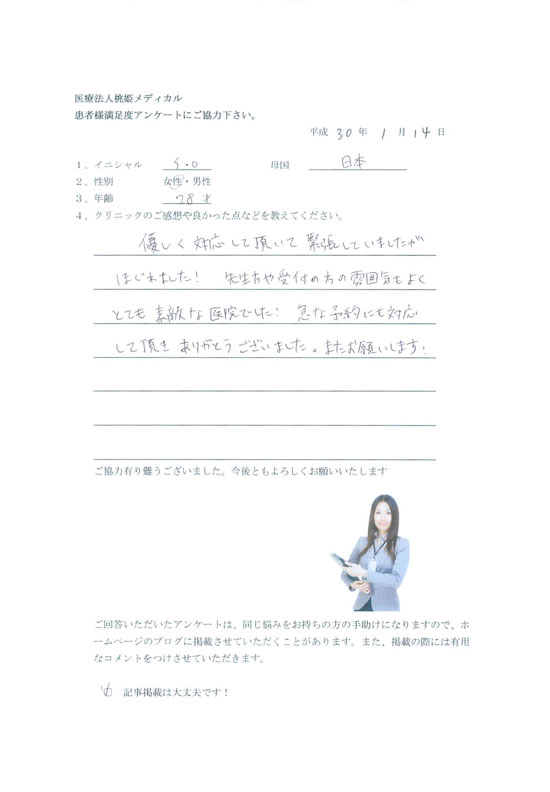 医療法人桃姫メディカル
患者様満足度アンケートにご協力下さい。
平成 30 年 1 月 14 日
1、イニシャル S.O 母国 日本
2、性別 女性・男性
3、年齢 28 才
4、クリニックのご感想や良かった点などを教えてください。
優しく対応して頂いて 緊張していましたが
はじれました! 先生方や受付の方の雰囲気もよく
とても素敵な医院でした! 急な予約にも対応
して頂き ありがとうございました。またお願いします!
ご協力有り難うございました。今後ともよろしくお願いいたします
ご回答いただいたアンケートは、同じ悩みをお持ちの方の手助けになりますので、ホ
ームページのブログに掲載させていただくことがあります。また、掲載の際には有用
なコメントをつけさせていただきます。
記事掲載は大丈夫です!